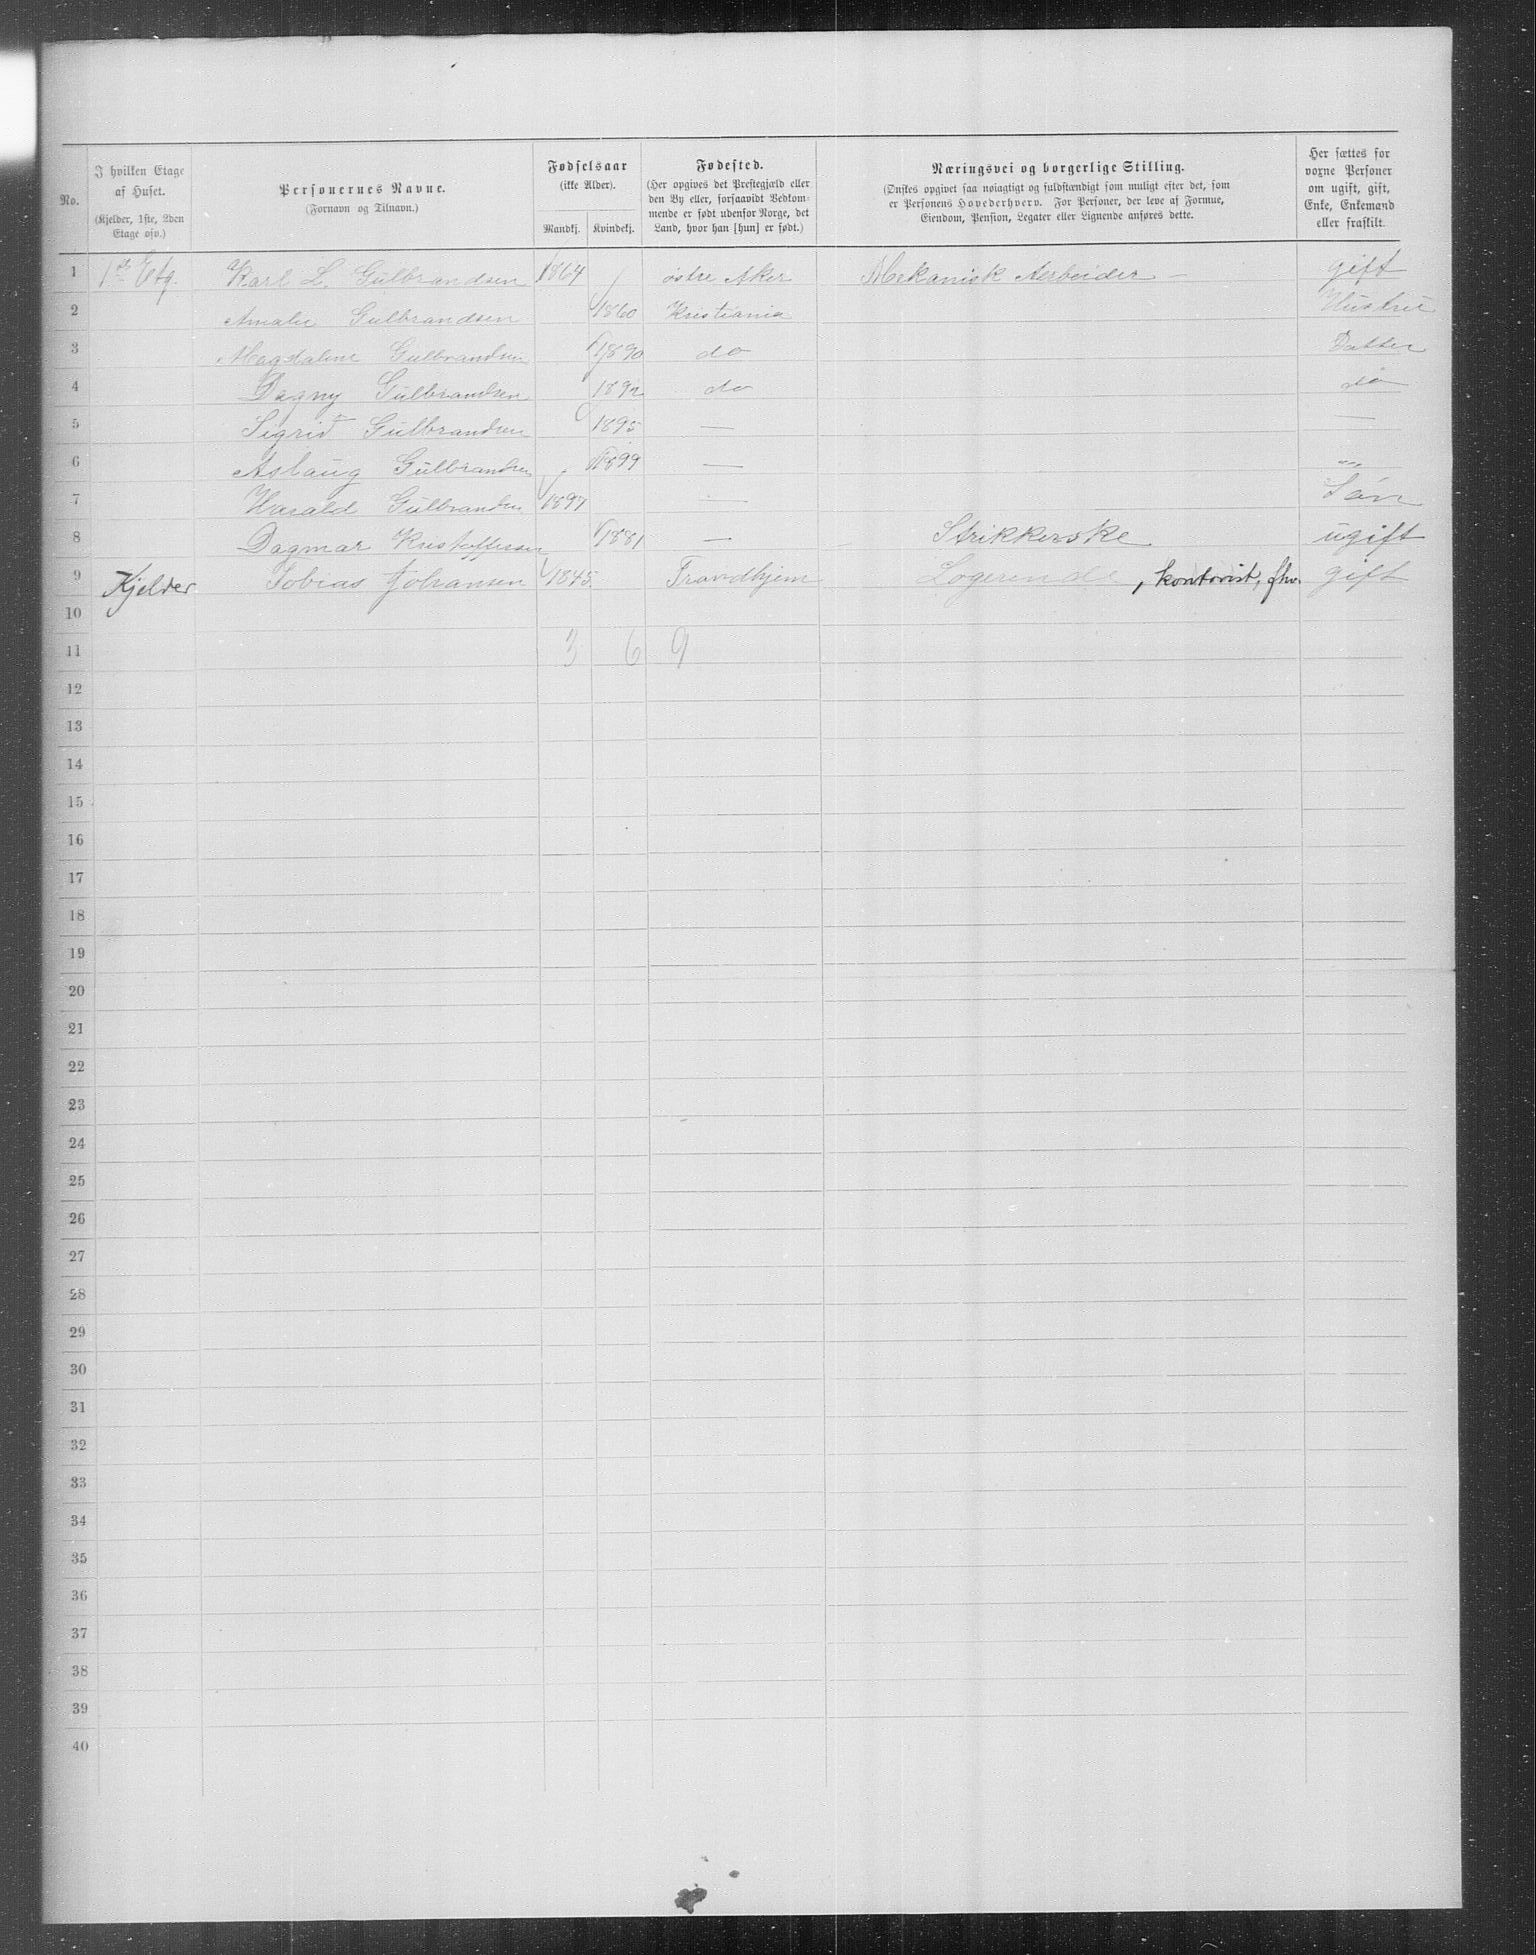 No.
I hvilken Etage af Huset.
(Kjelder, 1ste, 2den Etage osv.)
Personernes Navne.
(Fornavn og Tilnavn.)
Fødselsaar
(ikke Alder).
Mandkj. Kvindekj.
Fødested.
(Her opgives det Præstegjæld eller
den By eller, forsaavidt Vedkom-
mende er født udenfor Norge, det
Land, hvor han [hun] er født.)
Næringsvei og borgerlige Stilling.
(Ønskes opgivet saa nøiagtigt og fuldstændigt som muligt efter det, som
er Personens Hovederhverv. For Personer, der leve af Formue,
Eiendom, Pension, Legater eller Lignende anføres dette.
Her sættes for
voxne Personer
om ugift, gift,
Enke, Enkemand
eller fraskilt.
1 1ste Etg. Karl L. Gulbrandsen 1864 østre Aker Mekanisk Aerbeider — gift
2 Amalie Gulbrandsen 1860 Kristiania Hustru
3 Magdaline Gulbrandsen 1890 do Datter
4 Dagny Gulbrandsen 1892 do do
5 Sigrid Gulbrandsen 1895 — —
6 Aslaug Gulbrandsen 1899 — „
7 Harald Gulbrandsen 1897 — Søn
8 Dagmar Kristoffersen 1881 — Strikkerske ugift
9 Kjelder Tobias Johansen 1845 Trondhjem Logerende, kontorist, fhv. gift
10
11 3 6 9
12
13
14
15
16
17
18
19
20
21
22
23
24
25
26
27
28
29
30
31
32
33
34
35
36
37
38
39
40